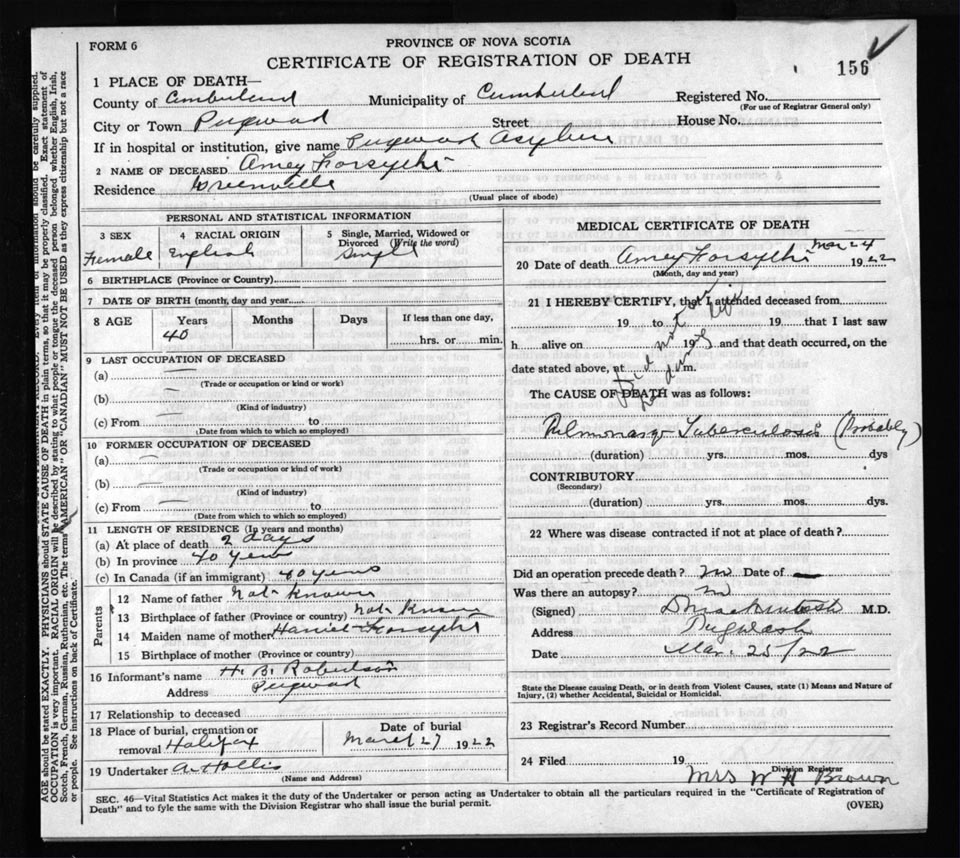 FORM 6
PROVINCE OF NOVA SCOTIA
CERTIFICATE OF REGISTRATION OF DEATH
156
1 PLACE OF DEATH—
County of Cumberland Municipality of Cumberland Registered No.
(For use of Registrar General only)
City or Town Pugwash Street House No.
If in hospital or institution, give name Pugwash Asylum
2 NAME OF DECEASED Amey Forsythe
Residence Greenville
(Usual place of abode)
PERSONAL AND STATISTICAL INFORMATION
3 SEX 4 RACIAL ORIGIN 5 Single, Married, Widowed or Divorced (Write the word)
Female English Single
6 BIRTHPLACE (Province or Country)
7 DATE OF BIRTH (month, day and year)
8 AGE Years Months Days If less than one day,
40 hrs. or min.
9 LAST OCCUPATION OF DECEASED
(a) —
(Trade or occupation or kind or work)
(b) —
(Kind of industry)
(c) From to
(Date from which to which so employed)
10 FORMER OCCUPATION OF DECEASED
(a) —
(Trade or occupation or kind of work)
(b) —
(Kind of industry)
(c) From — to
(Date from which to which so employed)
11 LENGTH OF RESIDENCE (In years and months)
(a) At place of death 2 days
(b) In province 40 years
(c) In Canada (if an immigrant) 40 years
Parents
12 Name of father Not Known
13 Birthplace of father (Province or country) Not Known
14 Maiden name of mother Forsythe
15 Birthplace of mother (Province or country)
16 Informant's name H. B. Robertson
Address Pugwash
17 Relationship to deceased
18 Place of burial, cremation or removal Halifax
Date of burial
March 27 1922
19 Undertaker A. Hollis
(Name and Address)
MEDICAL CERTIFICATE OF DEATH
20 Date of death Amey Forsythe Mar 24 1922
(Month, day and year)
21 I HEREBY CERTIFY, that I attended deceased from
19 to 19 that I last saw
h alive on 19 and that death occurred, on the
date stated above, at m.
The CAUSE OF DEATH was as follows:
Pulmonary Tuberculosis (Probably)
(duration) yrs. mos. dys
CONTRIBUTORY
(Secondary)
(duration) yrs. mos. dys.
22 Where was disease contracted if not at place of death?
Did an operation precede death? no Date of —
Was there an autopsy? no
(Signed) D Mackintosh M.D.
Address Pugwash
Date Mar. 25/22
State the Disease causing Death, or in death from Violent Causes, state (1) Means and Nature of
Injury, (2) whether Accidental, Suicidal or Homicidal.
23 Registrar's Record Number
24 Filed 19
Division Registrar
Mrs W H Brown
SEC. 46—Vital Statistics Act makes it the duty of the Undertaker or person acting as Undertaker to obtain all the particulars required in the "Certificate of Registration of
Death" and to fyle the same with the Division Registrar who shall issue the burial permit.
(OVER)
AGE should be stated EXACTLY. PHYSICIANS should STATE CAUSE OF DEATH in plain terms, so that it may be properly classified. Exact statement of
OCCUPATION is very important. RACIAL ORIGIN will be described by stating to what people or tongue the deceased person belonged whether English, Irish,
Scotch, French, German, Russian, Ruthenian, etc. The terms "AMERICAN" OR "CANADIAN" MUST NOT BE USED as they express citizenship but not a race
or people. See instructions on back of Certificate.